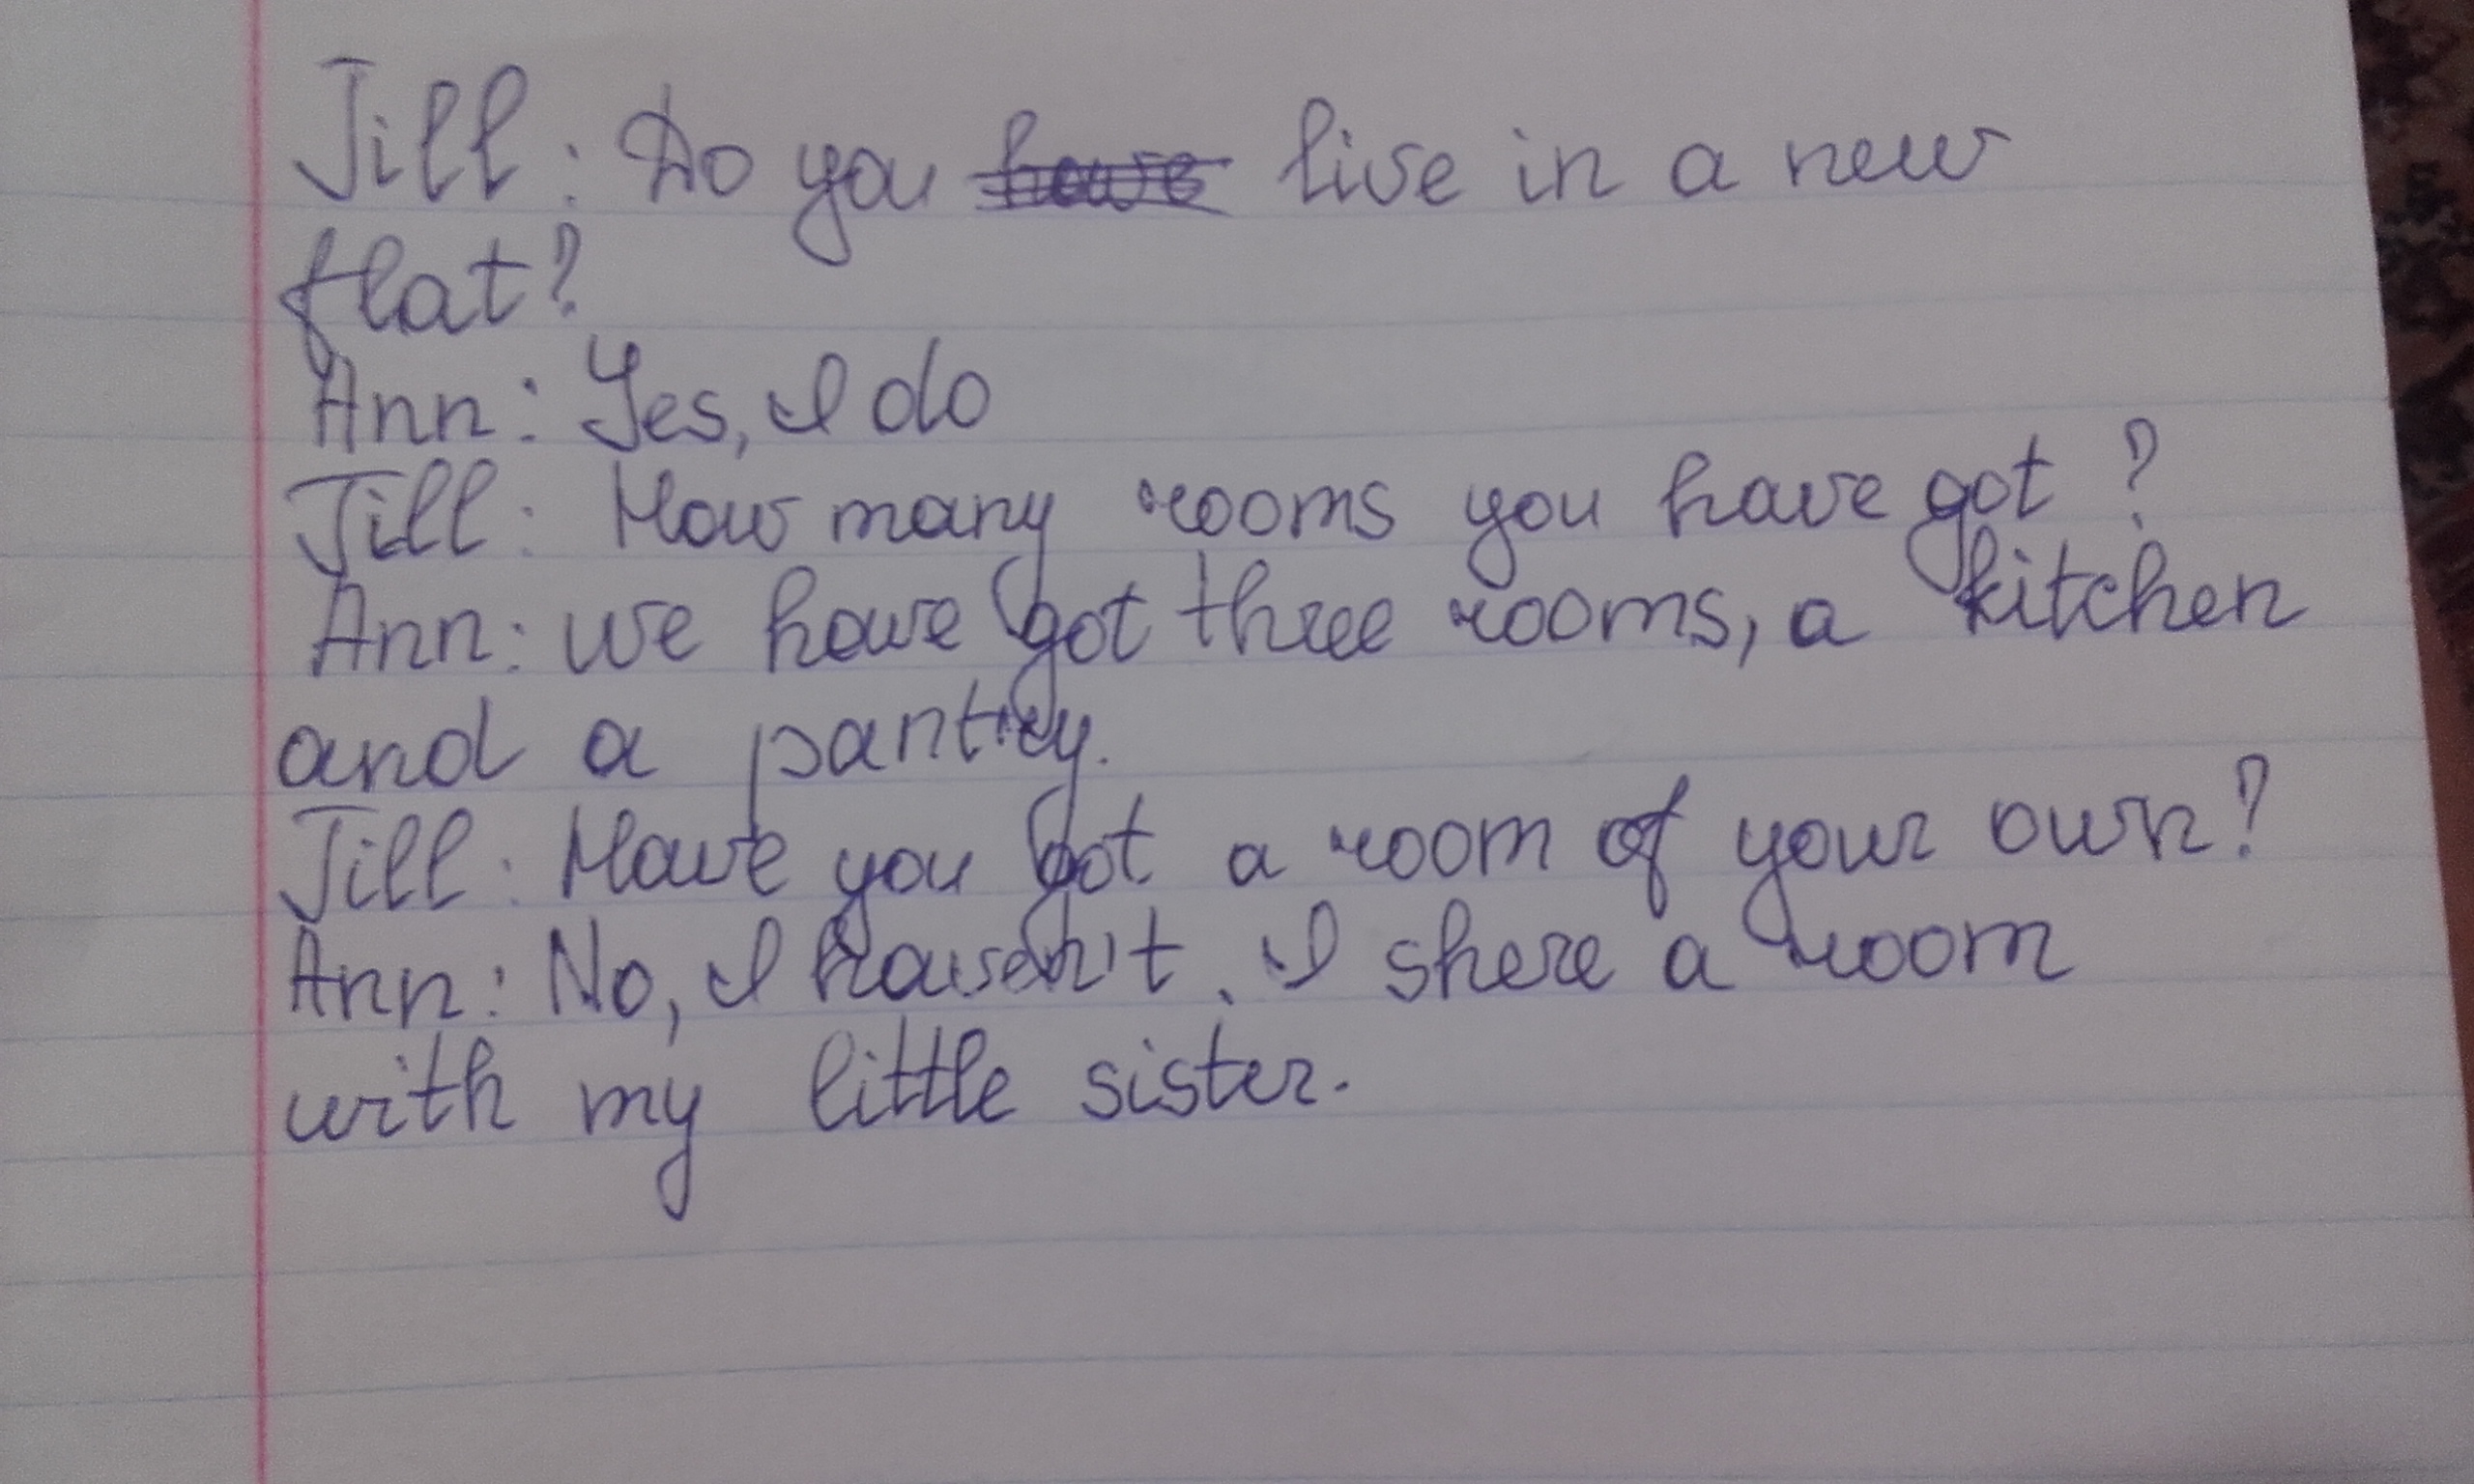 Jill: Do you have live in a new
flat?
Ann: Yes, I do
Jill: How many rooms you have got?
Ann: we have got three rooms, a kitchen
and a pantry.
Jill: Have you got a room of your own?
Ann: No, I haven't. I shere a room
with my little sister.